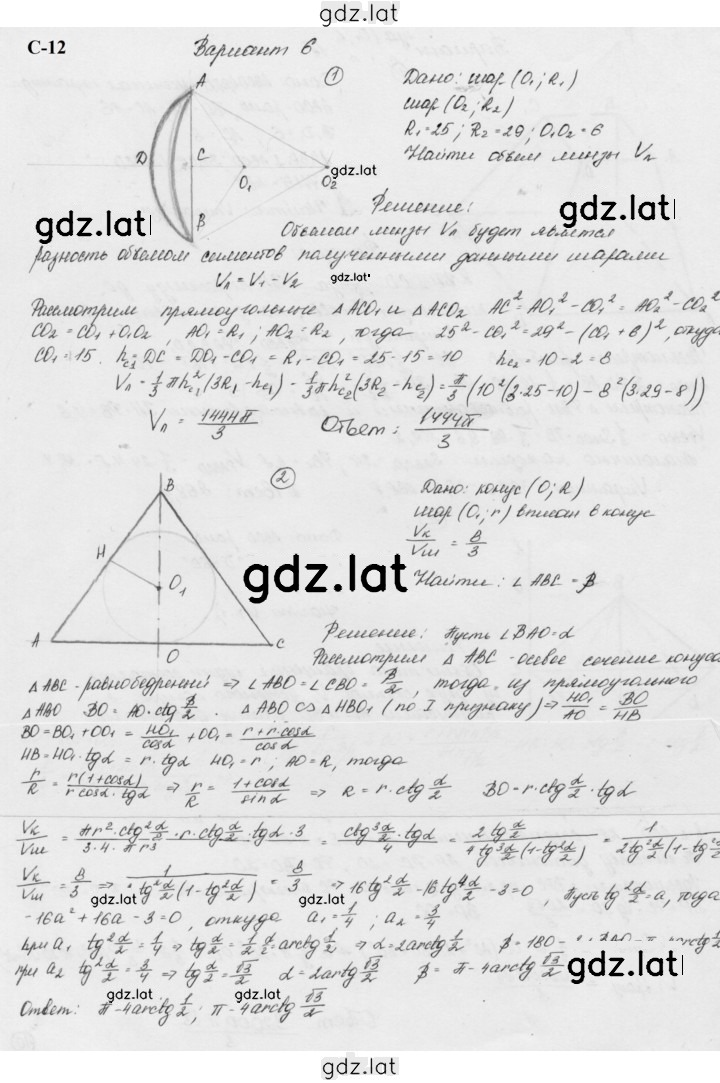 gdz.lat
С-12
Вариант 6
A
D
C
B
O₁
O₂
gdz.lat
gdz.lat
1
Дано: шар (O₁; R₁)
шар (O₂; R₂)
R₁=25; R₂=29; O₁O₂=6
Найти объем линзы Vл
Решение:
Объемом линзы Vл будет являтся
разность объемом сегментов полученными данными шарами
Vл = V₁ - V₂
gdz.lat
gdz.lat
Рассмотрим прямоугольные △ACO₁ и △ACO₂ AC² = AO₁² - CO₁² = AO₂² - CO₂²
CO₂ = CO₁ + O₁O₂, AO₁ = R₁; AO₂ = R₂, тогда 25² - CO₁² = 29² - (CO₁ + 6)², откуда
CO₁ = 15. hc₁ = DC = DO₁ - CO₁ = R₁ - CO₁ = 25 - 15 = 10 hc₂ = 10 - 2 = 8
Vл = 1/3 πh²c₁(3R₁ - hc₁) - 1/3 πh²c₂(3R₂ - hc₂) = π/3 (10²(3·25-10) - 8²(3·29-8))
Vл = 1444π/3 Ответ: 1444π/3
2
B
H
O₁
A
O
C
gdz.lat
Дано: конус (O; R)
шар (O₁; r) вписан в конус
Vк/Vш = 8/3
Найти: ∠ABC = β
gdz.lat
Решение: Пусть ∠BAO = α
Рассмотрим △ ABC - осевое сечение конуса
△ABC - равнобедренный ⇒ ∠ABO = ∠CBO = β/2, тогда из прямоугольного
△ABO BO = AO·ctg β/2. △ABO ∽ △HBO₁ (по I признаку) ⇒ HO₁/AO = BO/HB
BO = BO₁ + OO₁ = HO₁/cosα + OO₁ = r + r·cosα/cosα
HB = HO₁·tgα = r·tgα HO₁ = r; AO = R, тогда
r/R = r(1+cosα)/r cosα·tgα ⇒ r/R = 1+cosα/sinα ⇒ R = r·ctg α/2 BO = r·ctg α/2 · tgα
Vк/Vш = πr²·ctg² α/2 · r·ctg α/2 · tgα·3/3·4·πr³ = ctg³ α/2 · tgα/4 = 2tg α/2/4tg³ α/2 (1-tg² α/2) = 1/2tg² α/2 (1-tg² α/2)
Vк/Vш = 8/3 ⇒ 1/2tg² α/2 (1-tg² α/2) = 8/3 ⇒ 16tg² α/2 - 16tg⁴ α/2 - 3 = 0 Пусть tg² α/2 = a, тогда
gdz.lat
gdz.lat
-16a² + 16a - 3 = 0, откуда a₁ = 1/4; a₂ = 3/4
при a₁ tg² α/2 = 1/4 ⇒ tg α/2 = 1/2 α/2 = arctg 1/2 ⇒ α = 2arctg 1/2 β = 180 -
при a₂ tg² α/2 = 3/4 ⇒ tg α/2 = √3/2 α = 2arctg √3/2 β = π - 4arctg √3/2
gdz.lat
gdz.lat
gdz.lat
Ответ: π - 4arctg 1/2; π - 4arctg √3/2
gdz.lat